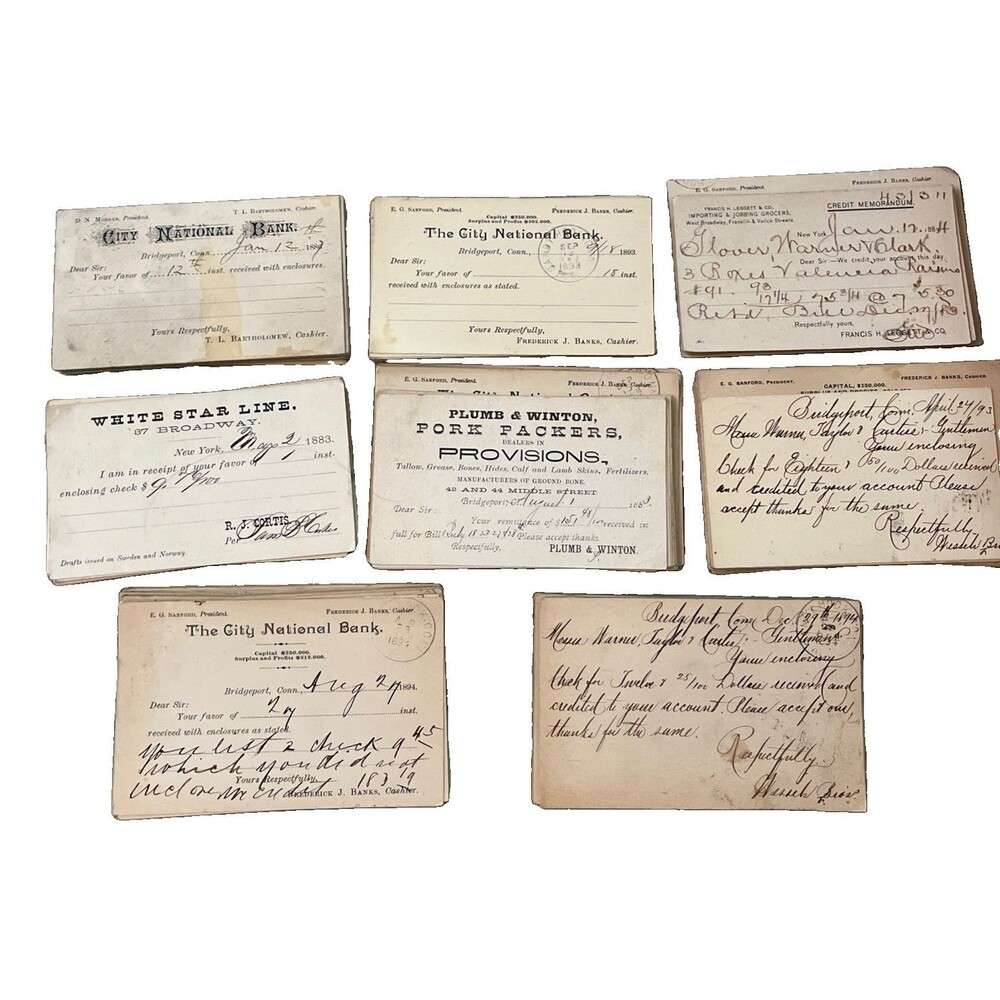 D. N. Morgan, President. T. L. Bartholomew, Cashier.
City National Bank.
Bridgeport, Conn., Jan. 12th 188
Dear Sir:
Your favor of 12th inst. received with enclosures.
Yours Respectfully,
T. L. Bartholomew, Cashier.
E. G. Sanford, President. Frederick J. Banks, Cashier.
Capital $250.000.
Surplus and Profits $202.000.
The City National Bank.
Bridgeport, Conn., 9/18 1893
SEP
1893
Dear Sir:
Your favor of 18 inst.
received with enclosures as stated.
Yours Respectfully,
Frederick J. Banks, Cashier.
E. G. Sanford, President. Frederick J. Banks, Cashier.
Francis H. Leggett & Co.,
Importing & Jobbing Grocers,
West Broadway, Franklin & Varick Streets.
CREDIT MEMORANDUM.
New York Jan. 12. 1884
Glover, Warner & Clark.
Dear Sir:—We credit your account this day
3 Boxes Valencia Raisins
Respectfully yours,
FRANCIS H. LEGGETT & CO.
WHITE STAR LINE,
37 BROADWAY.
New York, May 2 1883.
I am in receipt of your favor of 1 inst.
enclosing check $
R. J. CORTIS
Per
Drafts issued on Sweden and Norway.
E. G. Sanford, President. Frederick J. Banks, Cashier.
PLUMB & WINTON,
PORK PACKERS,
DEALERS IN
PROVISIONS,
Tallow, Grease, Bones, Hides, Calf and Lamb Skins, Fertilizers,
MANUFACTURERS OF GROUND BONE.
42 AND 44 MIDDLE STREET
Bridgeport, August 1 188
Dear Sir:
Your remittance of $ received in
full for Bill July Please accept thanks.
Respectfully, PLUMB & WINTON.
E. G. Sanford, President. Frederick J. Banks, Cashier.
CAPITAL, $250.000.
Bridgeport, Conn, April 27/93
Warner, Taylor & Curtis:- Gentlemen
Yours enclosing
Check for Eighteen & 50/100 Dollars received
and credited to your account Please
accept thanks for the same.
Respectfully,
E. G. Sanford, President. Frederick J. Banks, Cashier.
The City National Bank.
Capital $250.000.
Surplus and Profits $212.000.
Bridgeport, Conn., Aug 27 1894.
Dear Sir:
Your favor of 27 inst.
received with enclosures as stated.
you list a check 9 45
which you did not
enclose
Yours Respectfully,
Frederick J. Banks, Cashier.
Bridgeport, Conn Dec. 29th 1894
Warner, Taylor & Curtis:- Gentlemen
Yours enclosing
Check for Twelve & 25/100 Dollars received and
credited to your account. Please accept our
thanks for the same.
Respectfully.